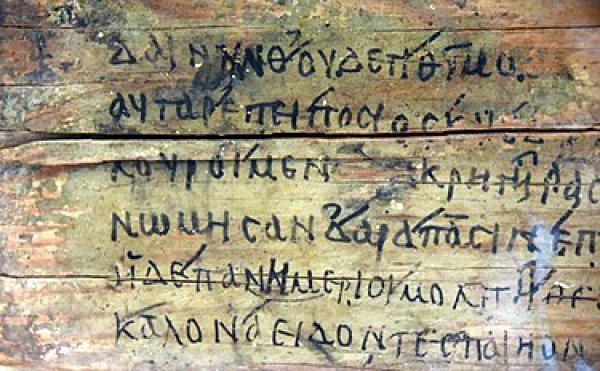 ΔΑΙΝΥΝΘ ΟΥΔΕ
ΑΥΤΑΡΕΠΕΙΠΟϹ
ΚΟΥΡΟΙΜΕΝ ΚΡΗΤΗΡΑϹ
ΝΩΜΗϹΑΝΔΑΡΑΠΑϹΙΝΕΠ
ΟΙΔΕΠΑΝΗΜΕΡΙΟΙΜΟΛΠΗΘΕ
ΚΑΛΟΝΑΕΙΔΟΝΤΕϹΠΑΙΗΟΝ